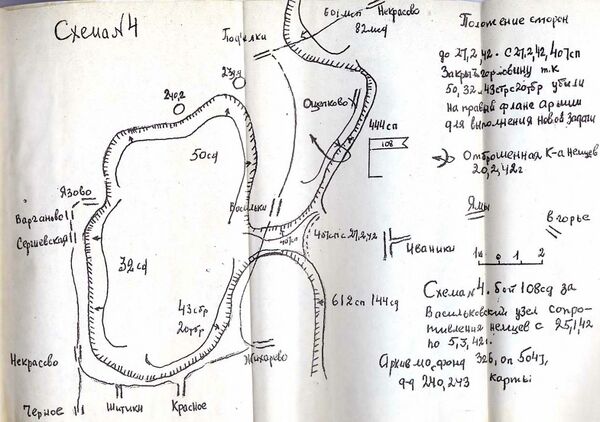 Схема N4
601 мсп
Некрасово
82 мсд
Подъелки
240,2
Ощепково
444 сп
108
50 сд
Язово
Варганово
Сергиевская
Васильки
407 сп
407 сп с 27,2,42
Иваники
32 сд
43 стр
20 тбр
612 сп 144 сд
Некрасово
Жихарево
Черное
Шитики
Красное
Положение сторон
до 27,2,42. С 27,2,42, 407 сп
Закрыть горловину т.к
50, 32. 43 стр с 20 тбр убыли
на правый фланг армии
для выполнения новой задачи
Отброшенная к-а немцев
20,2,42 г
Ямы
в горье
1 0 1 2
Схема N4. бой 108 сд за
Васильковский узел сопро-
тивления немцев с 25,1,42
по 5,3,42 г.
Архив мо, фонд 326, оп 5045,
д-д 240, 243 карты